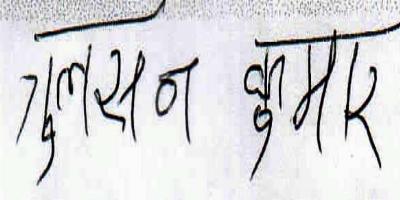 गुलसन कुमार